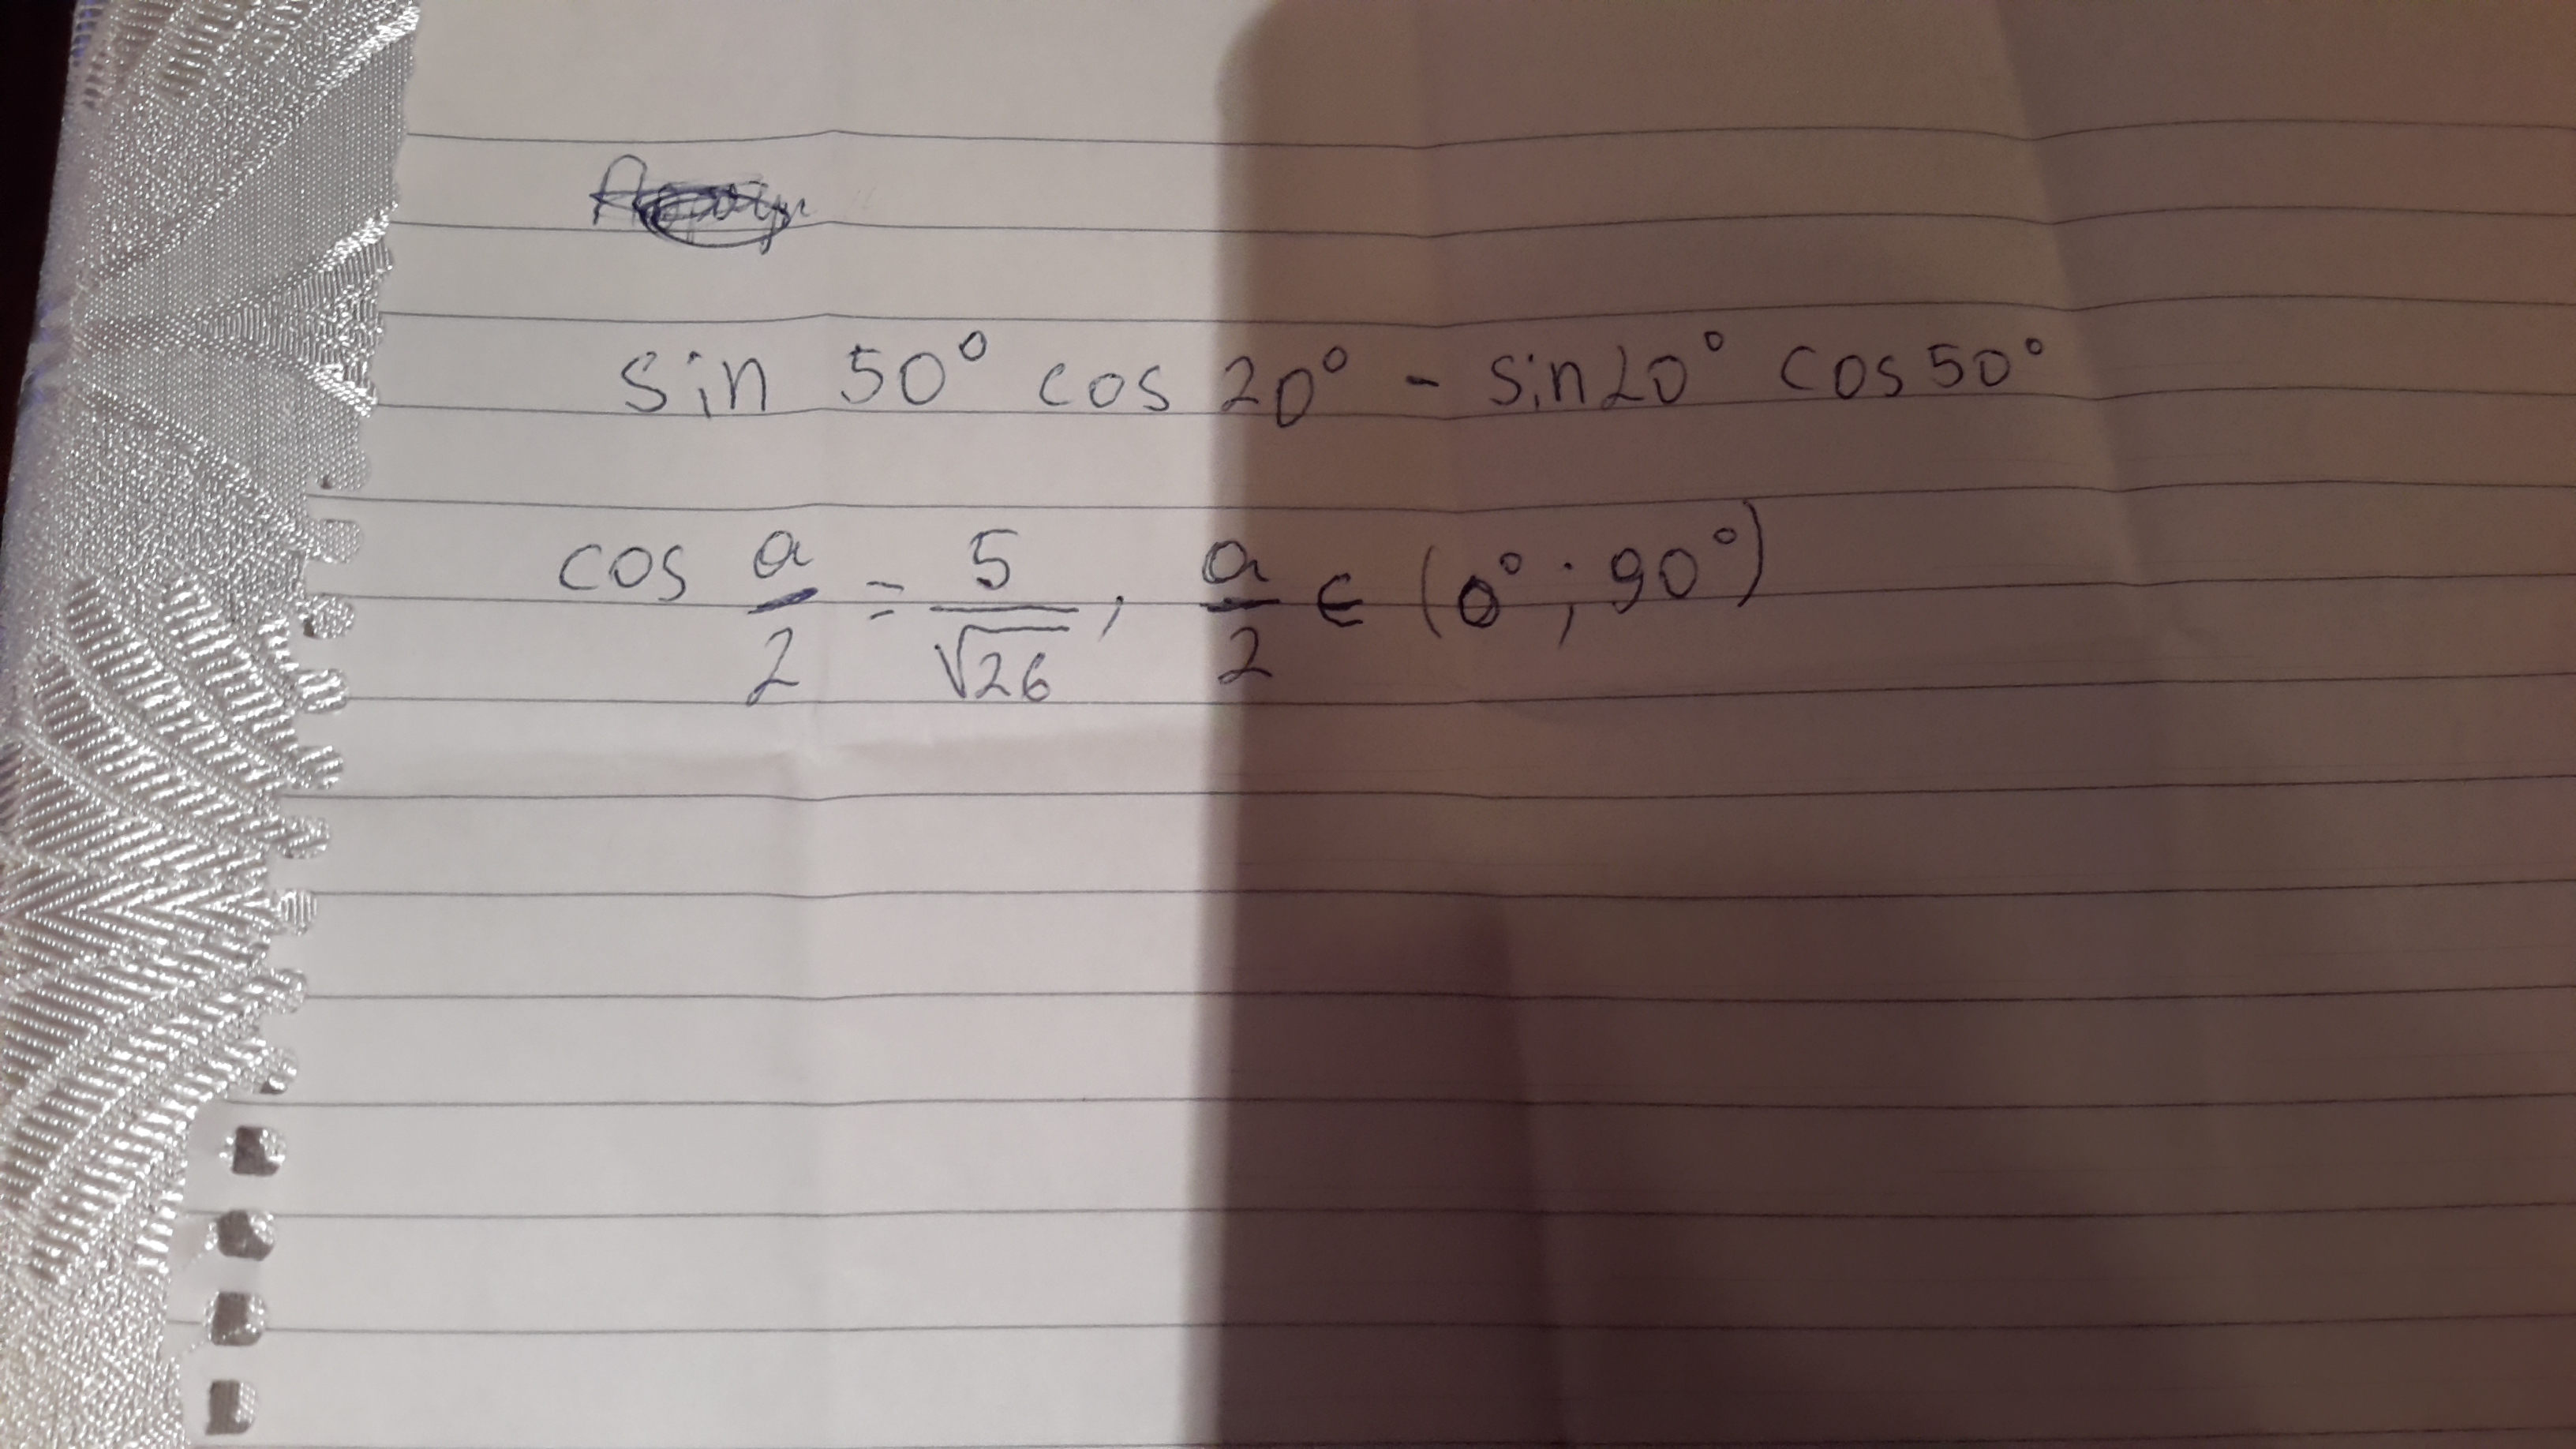 sin 50° cos 20° - sin 20° cos 50°
cos a/2 = 5/√26, a/2 ∈ (0°; 90°)